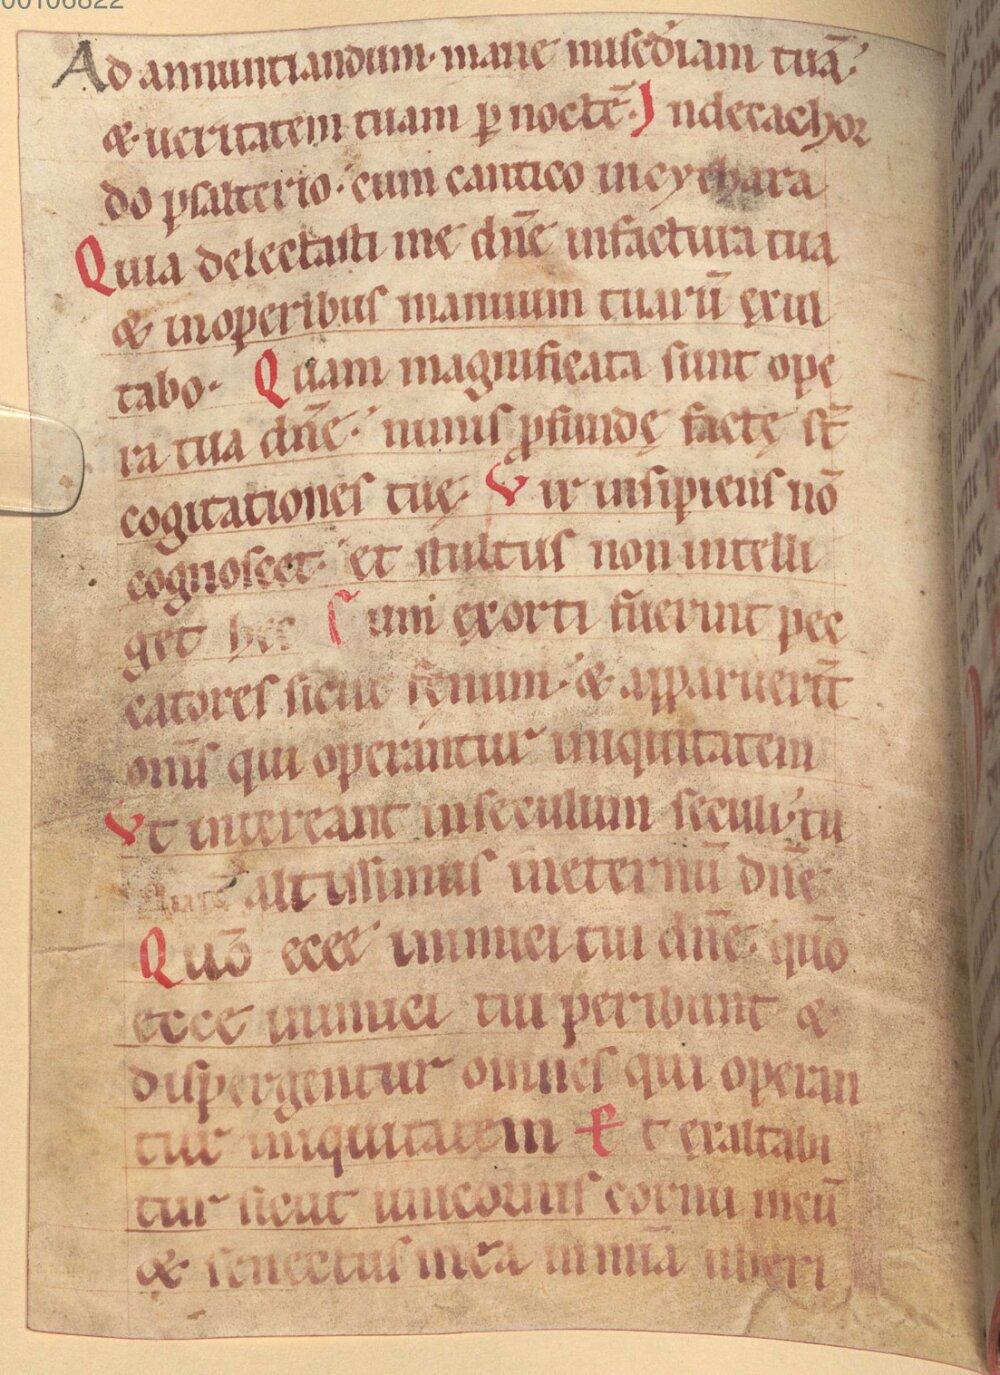 00106822
Ad annuntiandum· mane misēdiam tuā·
& ueritatem tuam ꝑ noctē· Indecachor
do psalterio· cum cantico incythara
Quia delectasti me dn̄e infactura tua
& inoperibus manuum tuarū exul
tabo· Quam magnificata sunt opę
ra tua dn̄e· nimis ꝓfundę factę st̄
cogitationes tuę· Vir insipiens nō
cognoscet· et stultus non intelli
get hec Cum exorti fuerint pec
catores sicut fęnum· & apparuerīt
om̄s qui operantur iniquitatem
Vt intereant inseculum seculi· tu
altissimus ineternū dn̄e
Quō ecce inimici tui dn̄e· quō
ecce inimici tui peribunt &
dispergentur omnes qui operan
tur iniquitatem Et exaltabi
tur sicut unicornis cornu meū
& senectus mea inmīa uberi